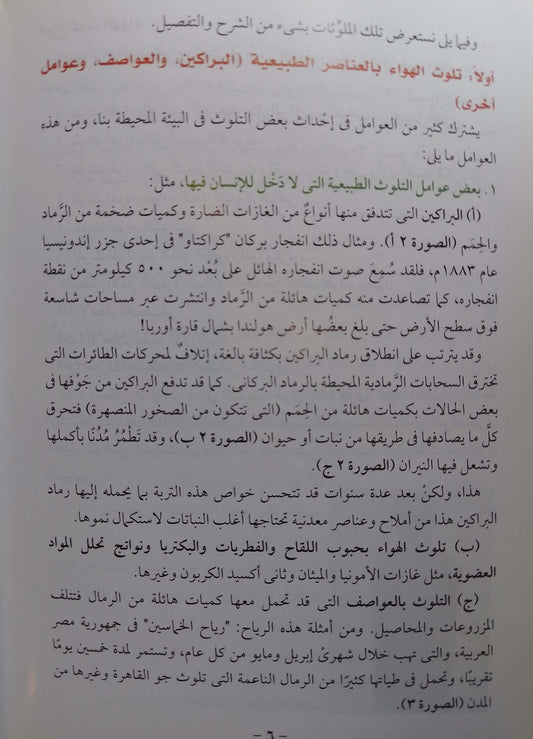 وفيما يلى نستعرض تلك الملوِّثات بشىء من الشرح والتفصيل.
أولاً: تلوث الهواء بالعناصر الطبيعية (البراكين، والعواصف، وعوامل
أخرى)
يشترك كثير من العوامل فى إحْداث بعض التلوث فى البيئة المحيطة بنا، ومن هذه
العوامل ما يلى:
١. بعض عوامل التلوث الطبيعية التى لا دَخْل للإنسان فيها، مثل:
(أ) البراكين التى تتدفق منها أنواعٌ من الغازات الضارة وكميات ضخمة من الرَّماد
والحِمَم (الصورة ٢ أ). ومثال ذلك انفجار بركان "كراكتاو" فى إحدى جزر إندونيسيا
عام ١٨٨٣م، فلقد سُمِعَ صوت انفجاره الهائل على بُعْد نحو ٥٠٠ كيلومتر من نقطة
انفجاره، كما تصاعدت منه كميات هائلة من الرَّماد وانتشرت عبر مساحات شاسعة
فوق سطح الأرض حتى بلغ بعضُها أرض هولندا بشمال قارة أوربا!
وقد يترتب على انطلاق رماد البراكين بكثافة بالغة، إتلافٌ لمحركات الطائرات التى
تخترق السحابات الرَّمادية المحيطة بالرماد البركانى. كما قد تدفع البراكين من جَوْفها فى
بعض الحالات بكميات هائلة من الحِمَم (التى تتكون من الصخور المنصهرة) فتحرق
كلَّ ما يصادفها فى طريقها من نبات أو حيوان (الصورة ٢ ب)، وقد تَطْمُرُ مُدُنًا بأكملها
وتشعل فيها النيران (الصورة ٢ ج).
هذا، ولكنْ بعد عدة سنوات قد تتحسن خواص هذه التربة بما يحمله إليها رماد
البراكين هذا من أملاح وعناصر معدنية تحتاجها أغلب النباتات لاستكمال نموها.
(ب) تلوث الهواء بحبوب اللقاح والفطريات والبكتريا ونواتج تحلل المواد
العضوية، مثل غازات الأمونيا والميثان وثانى أكسيد الكربون وغيرها.
(ج) التلوث بالعواصف التى قد تحمل معها كميات هائلة من الرمال فتتلف
المزروعات والمحاصيل. ومن أمثلة هذه الرياح: "رياح الخماسين" فى جمهورية مصر
العربية، والتى تهب خلال شهرىْ إبريل ومايو من كل عام، وتستمر لمدة خمسين يومًا
تقريبًا، وتحمل فى طياتها كثيرًا من الرمال الناعمة التى تلوث جو القاهرة وغيرها من
المدن (الصورة ٣).
- ٦ -